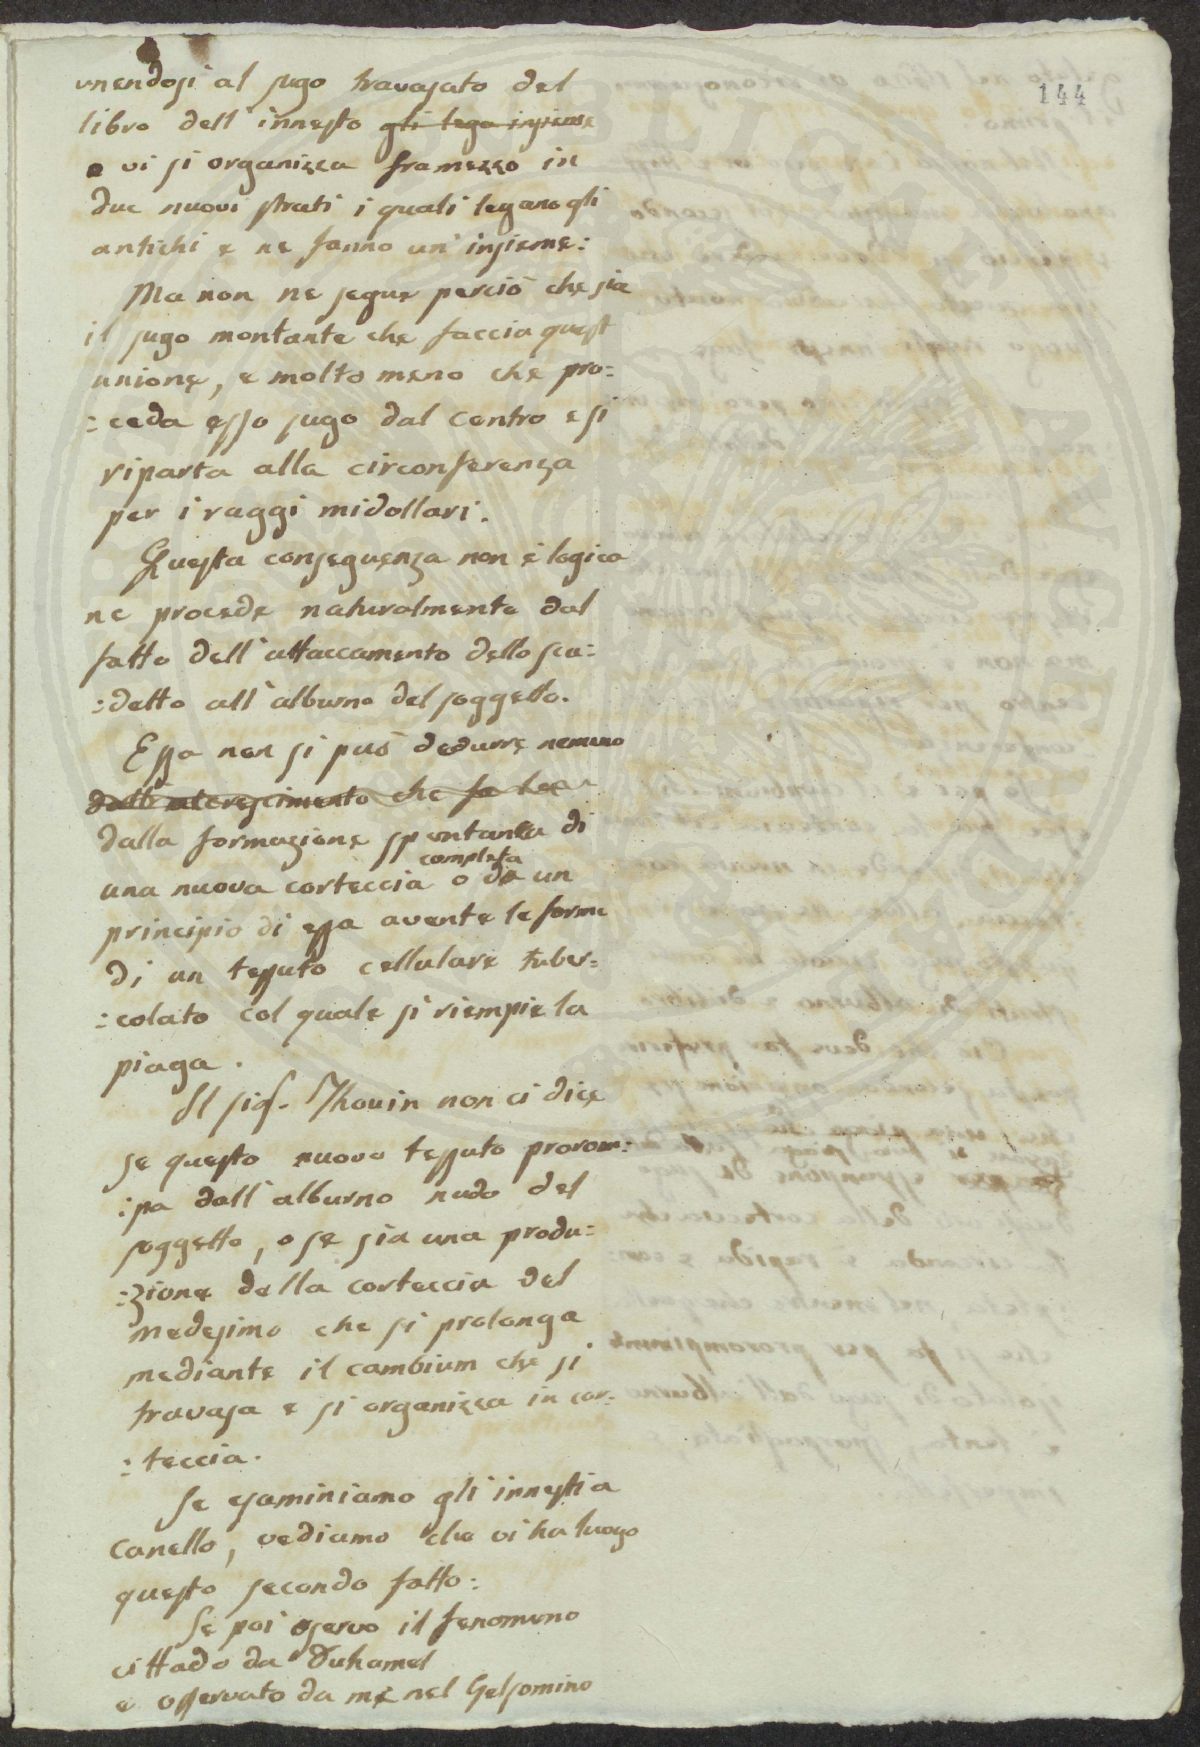 144
unendosi al sugo travasato del
libro dell'innesto gli lega insieme
e vi si organizza framezzo in
due nuovi strati i quali legano gli
antichi e ne fanno un'insieme:
Ma non ne segue perciò che sia
il sugo montante che faccia quest
unione, e molto meno che pro:
:ceda esso sugo dal centro e si
riparta alla circonferenza
per i raggi midollari.
Questa conseguenza non è logica
ne procede naturalmente dal
fatto dell'attaccamento dello scu:
:detto all'alburno del soggetto.
Essa non si può dedurre nemeno
dall'accrescimento che fa
dalla formazione spontanea di
completa
una nuova corteccia o da un
principio di essa avente le forme
di un tessuto cellulare tuber=
:colato col quale si riempie la
piaga.
Il sig. Thouin non ci dice
se questo nuovo tessuto prorom:
:pa dall'alburno nudo del
soggetto, o se sia una produ:
:zione della corteccia del
medesimo che si prolonga
mediante il cambium che si
travasa e si organizza in cor:
:teccia.
Se esaminiamo gli innesti a
canello, vediamo che vi ha luogo
questo secondo fatto:
Se poi osservo il fenomeno
cittado da Duhamel
e osservato da me nel Gelsomino